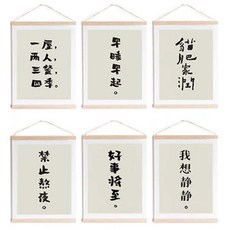 一屋，
两人，
三餐，
四季。
早睡早起。
貓肥家潤
禁止熬夜。
好事将至。
我想静静。